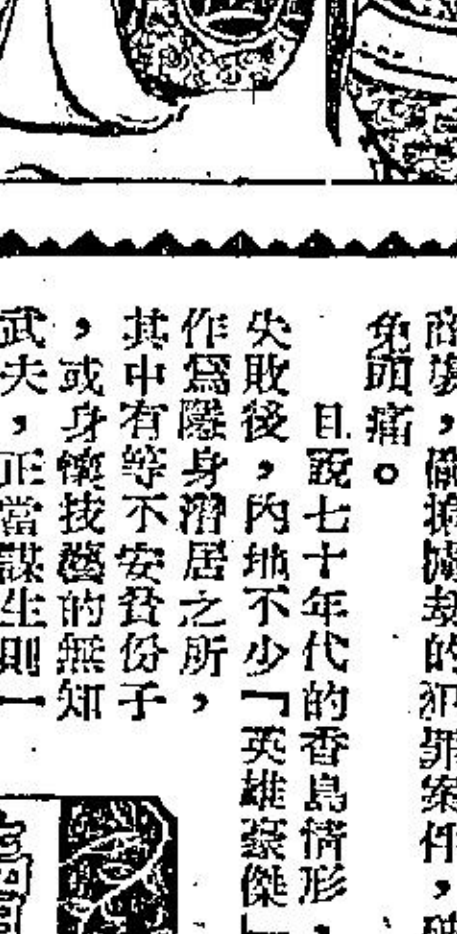 商場，偷搶擄劫的犯罪案件，
免頭痛。
且說七十年代的香島情形，
失敗後，內地不少「英雄豪傑」
作為隱身潛居之所，
其中有等不安貧份子
，或身懷技藝的無知
武夫，正當謀生則一